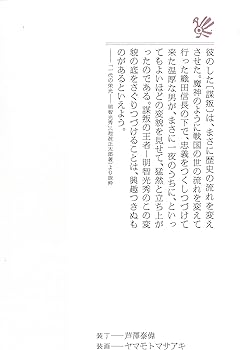 彼のした「謀叛」は、まさに歴史の流れを変え
させた。魔神のように戦国の世の流れを変えて
行った織田信長の下で、忠義をつくしつづけて
来た温厚な男が、まさに一夜のうちに、といっ
てもよいほどの変貌を見せて、猛然と立ち上が
ったのである。謀叛の王者―明智光秀のこの変
貌の底をさぐりつづけることは、興趣つきぬも
のがあるといえよう。
装丁――芦澤泰偉
装画――ヤマモトマサアキ